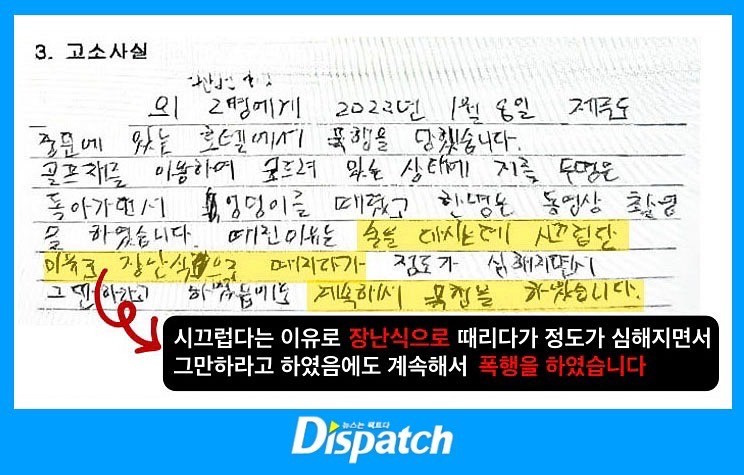 3. 고소사실
외 2명에게 2022년 1월 8일 제주도
중문에 있는 호텔에서 폭행을 당했습니다.
골프채를 이용하여 엎드려 있는 상태에 저를 두명은
돌아가면서 엉덩이를 때렸고 한명은 동영상 촬영
을 하였습니다. 때린이유는 술을 마시는데 시끄럽단
이유로 장난식으로 때리다가 정도가 심해지면서
그만하라고 하였음에도 계속해서 폭행을 하였습니다.
시끄럽다는 이유로 장난식으로 때리다가 정도가 심해지면서
그만하라고 하였음에도 계속해서 폭행을 하였습니다
뉴스는 팩트다
Dispatch